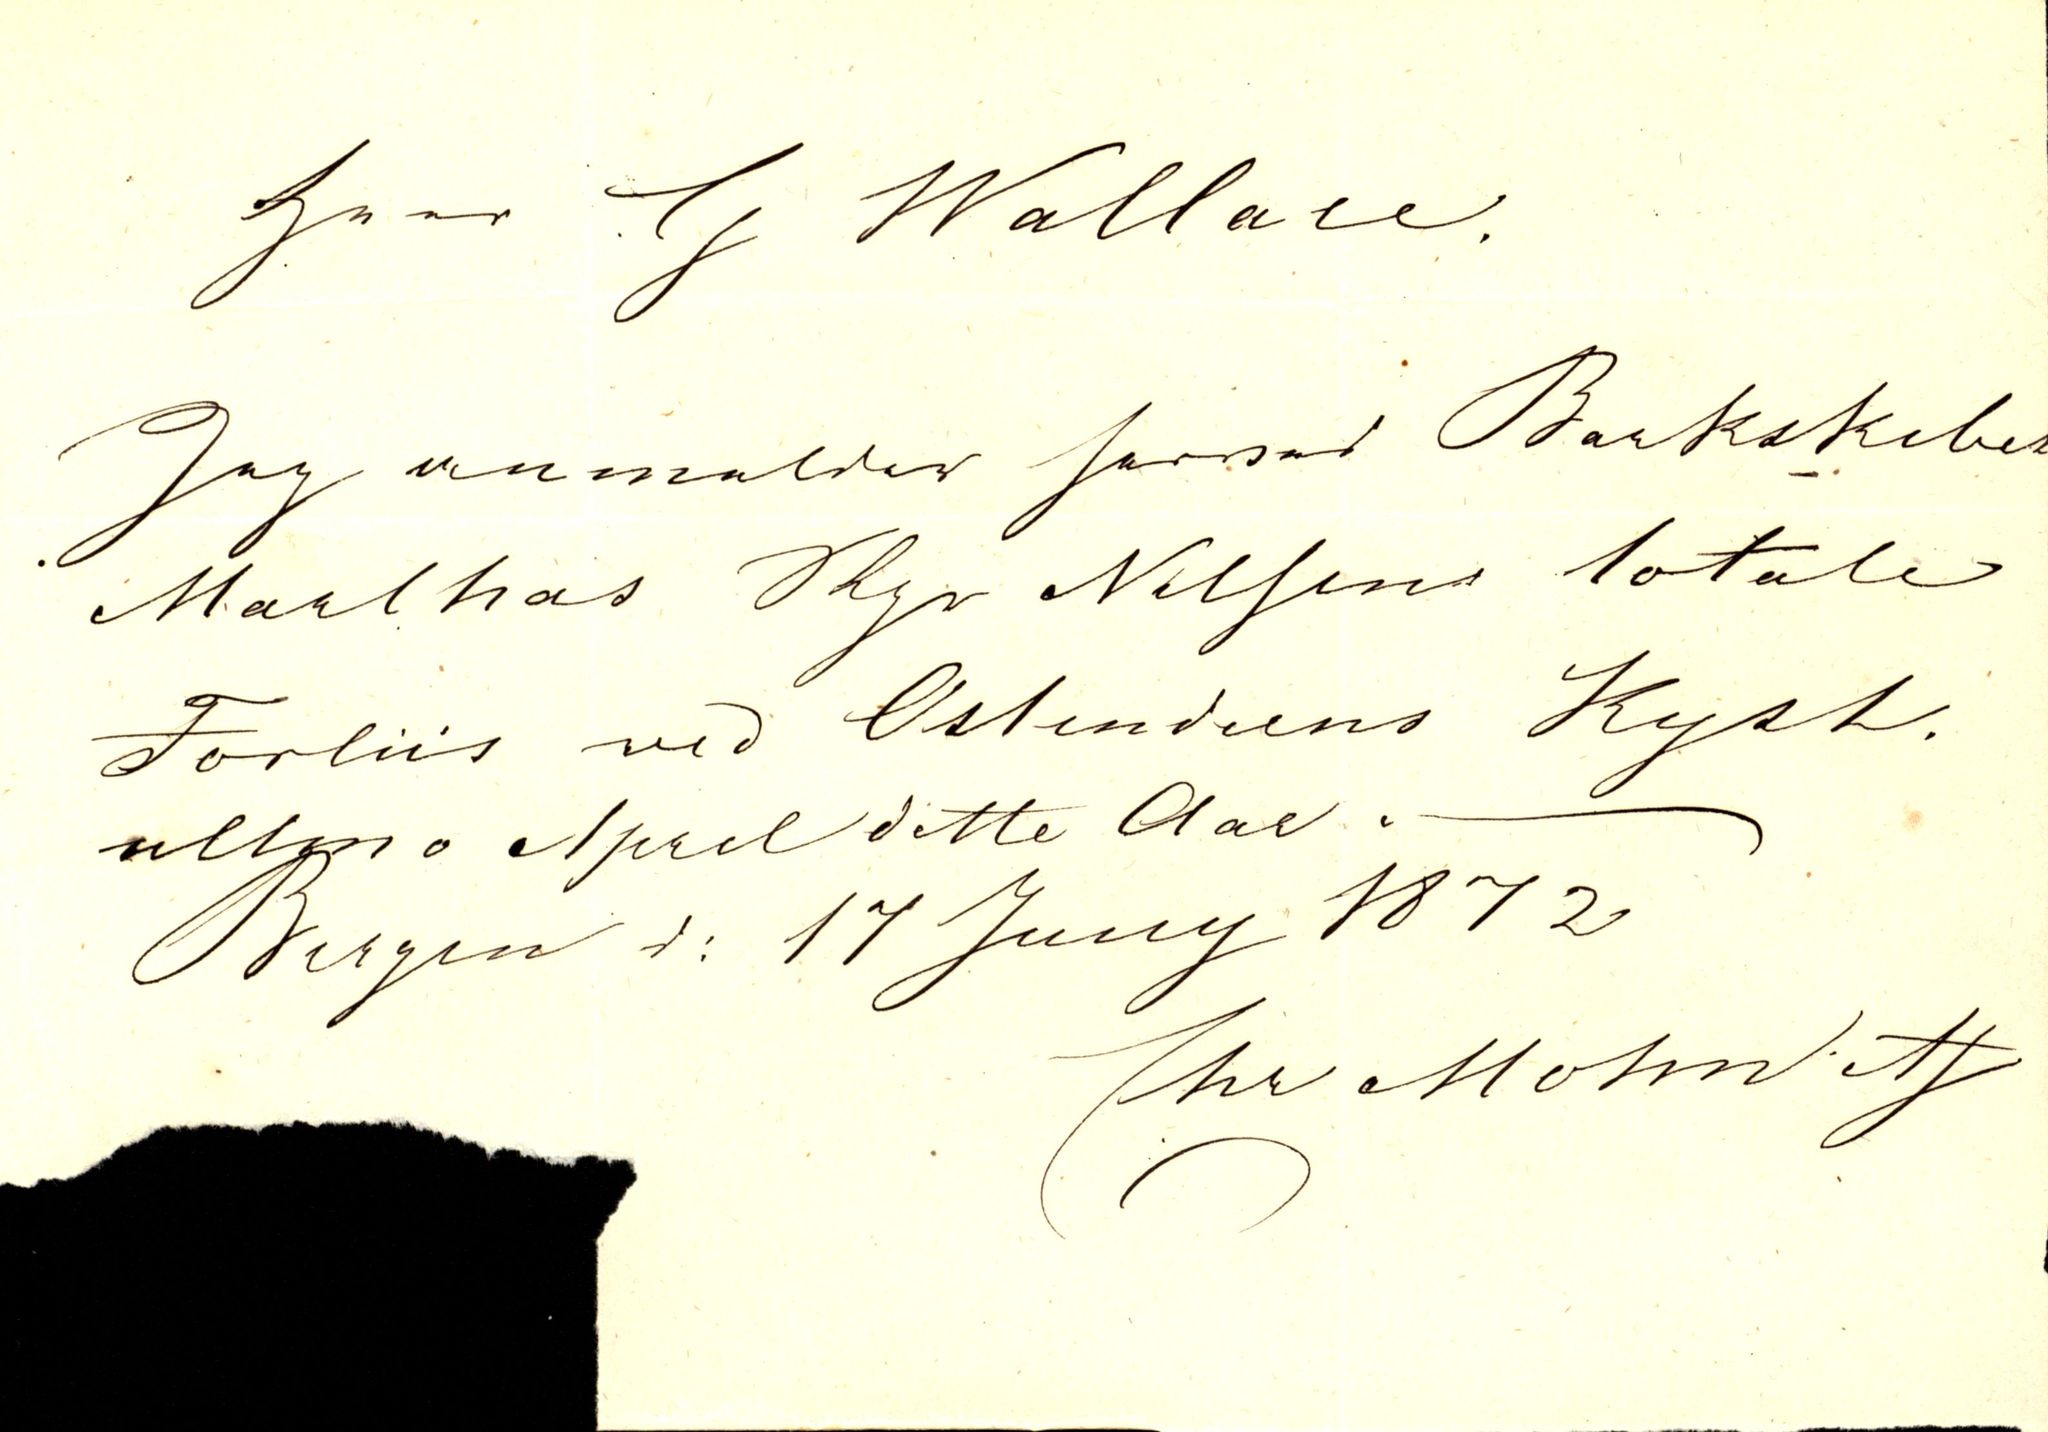 Herr G Wallace.
Jeg anmelder herved Barkskibet
Marthas Skpr Nilsens totale
Forliis ved Ostindiens Kyst.
ultmo April dette Aar.
Bergen d: 17 Juny 1872
Chr Mohn